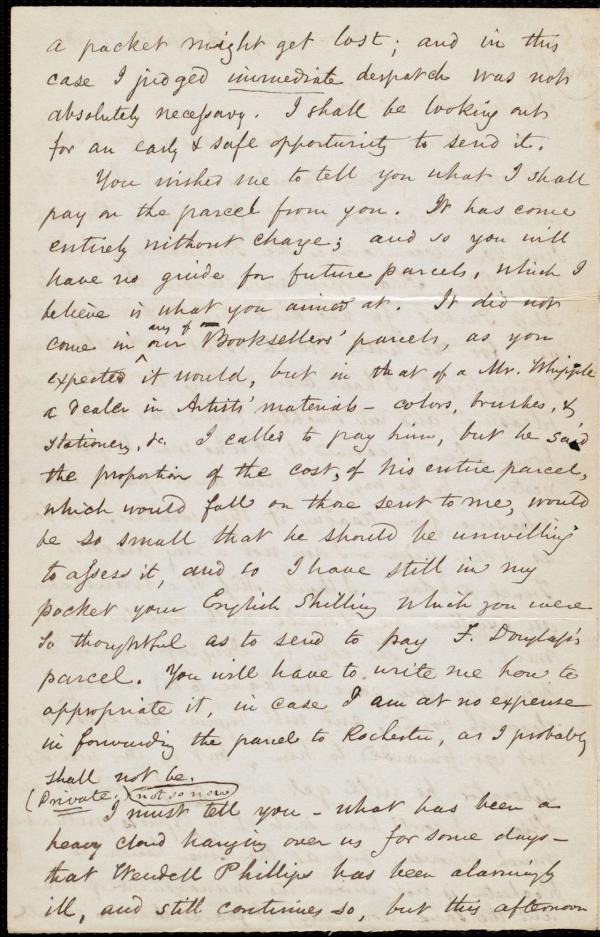 a packet might get lost; and in this
case I judged immediate despatch was not
absolutely necessary. I shall be looking out
for an early & safe opportunity to send it.
You wished me to tell you what I shall
pay on the parcel from you. It has come
entirely without charge; and so you will
have no guide for future parcels, which I
believe is what you aimed at. It did not
any of
come in our Booksellers' parcels, as you
expected it would, but in that of a Mr. Whipple
a dealer in Artists' materials – colors, brushes, &
stationery, &c. I called to pay him, but he said
the proportion of the cost, of his entire parcel,
which would fall on those sent to me, would
be so small that he should be unwilling
to assess it, and so I have still in my
pocket your English Shilling which you were
so thoughtful as to send to pay F. Douglass's
parcel. You will have to write me how to
appropriate it, in case I am at no expense
in forwarding the parcel to Rochester, as I probably
shall not be.
(Private;) not so now
I must tell you – what has been a
heavy cloud hanging over us for some days –
that Wendell Phillips has been alarmingly
ill, and still continues so, but this afternoon